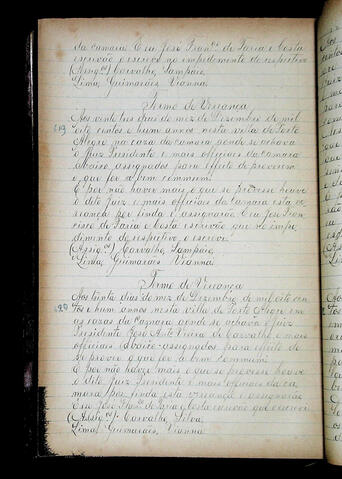 da camara Eu José Fran.co de Faria e Costa
escrivão o escrevi no impedimento do respectivo
(Assig.os) Carvalho, Sampaio,
Lima, Guimarães, Vianna.
Termo de Vereança
Aos vinte tres dias do mez de Dezembro de mil
oito centos e hum annos nesta villa de Porto
Alegre, na caza da camara aonde se achava
o Juiz Presidente e mais officiaes da camara
abaixo assignados para effeito de proverem
o que for a bem commum.
E por não haver mais o que se provesse houve
o dito Juiz e mais officiaes da camara esta ve-
reança por finda e assignarão Eu José Fran-
cisco de Faria e Costa escrivão que no impe-
dimento do respectivo o escrevi.
(Assig.os) Carvalho, Sampaio,
Lima, Guimarães, Vianna.
Termo de Vereança
Aos trinta dias do mez de Dezembro de mil oito cen-
tos e hum annos nesta villa de Porto Alegre em
as cazas da camara aonde se achava o Juiz
Presidente José de Carvalho e mais
officiaes abaixo assignados para effeito de
se prover o que for a bem commum.
E por não haver mais o que se provesse houve
o dito Juiz Presidente e mais officiaes da ca-
mara por finda esta vereança e assignarão
Eu José Fran.co de Faria e Costa escrivão que escrevi
(Assig.os) Carvalho, Silva,
Lima, Guimarães, Vianna